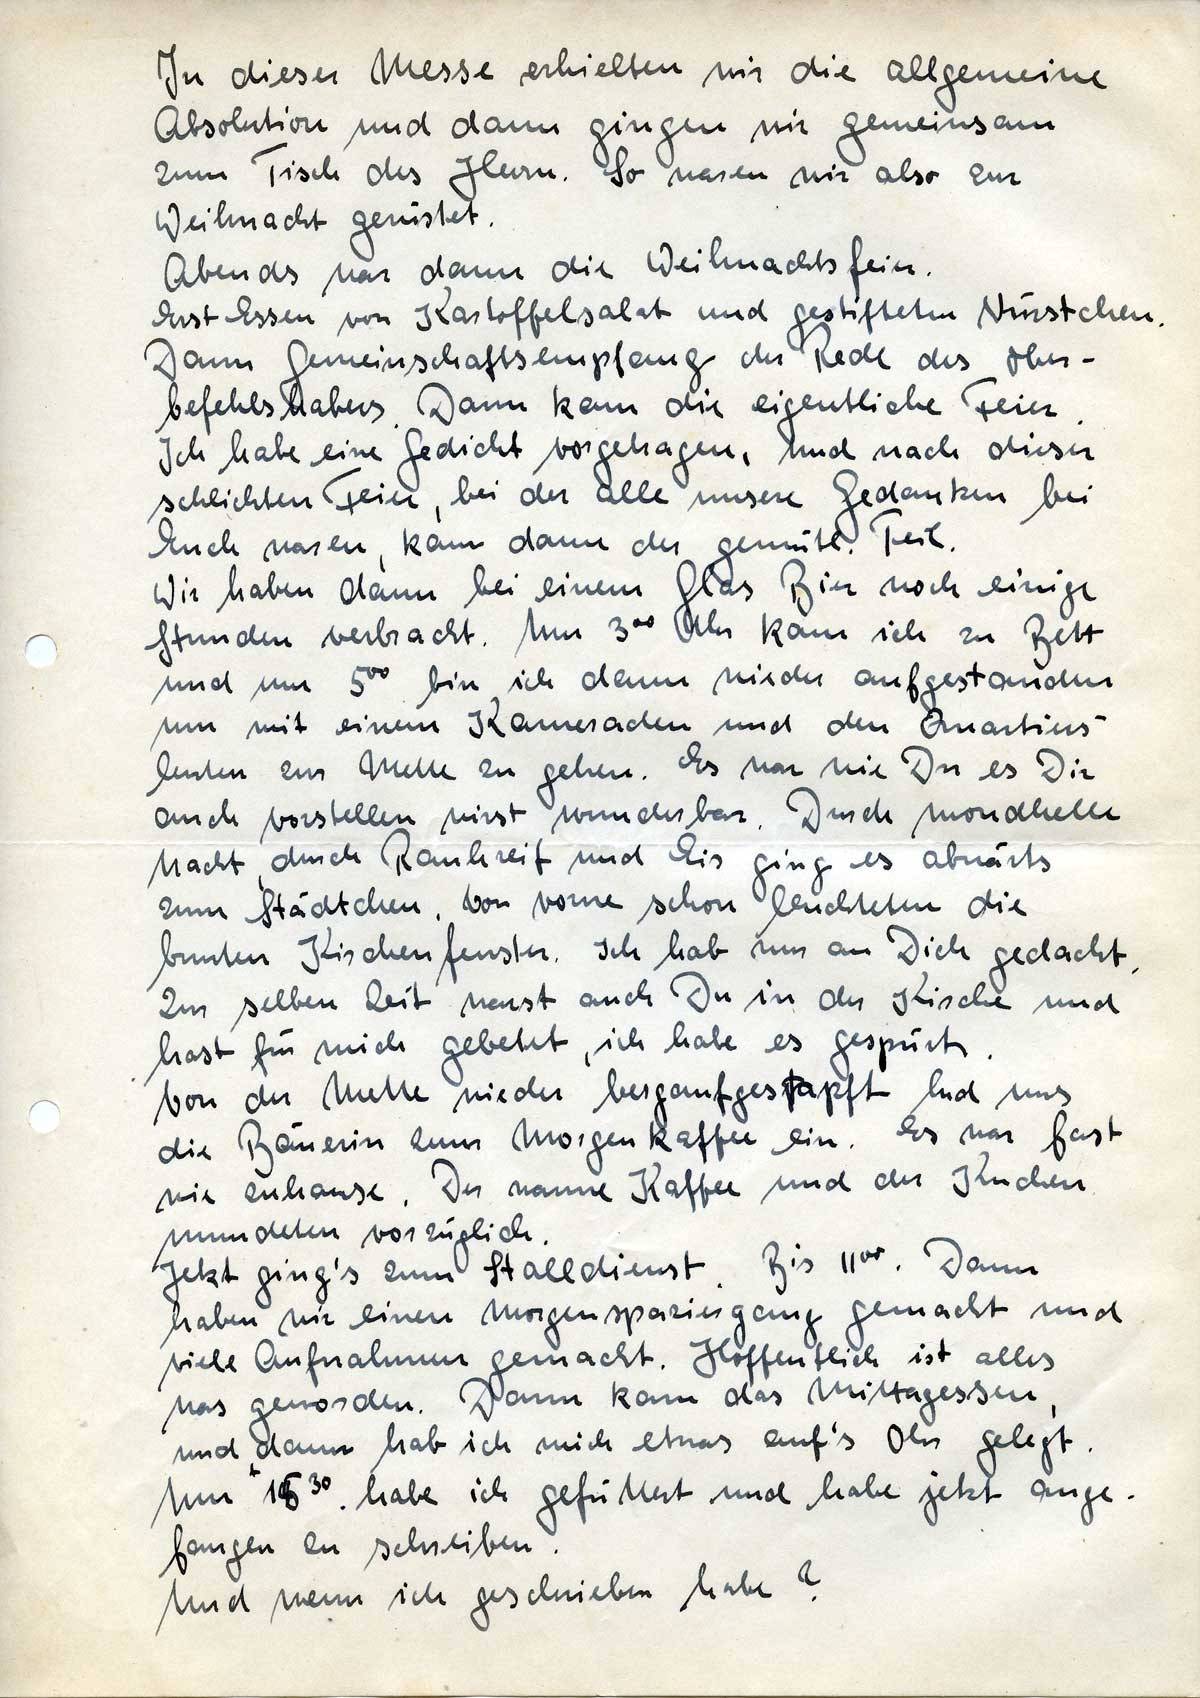 In dieser Messe erhielten wir die allgemeine
Absolution und dann gingen wir gemeinsam
zum Tisch des Herrn. So waren wir also zur
Weihnacht gerüstet.
Abends war dann die Weihnachtsfeier.
Erst Essen von Kartoffelsalat und gestifteten Würstchen.
Dann Gemeinschaftsempfang der Rede des Ober-
befehlshabers. Dann kam die eigentliche Feier.
Ich habe eine Gedicht vorgetragen, und nach dieser
schlichten Feier, bei der alle unsere Gedanken bei
Euch waren, kam dann der gemütl. Teil.
Wir haben dann bei einem Glas Bier noch einige
Stunden verbracht. Um 3⁰⁰ Uhr kam ich zu Bett
und um 5⁰⁰ bin ich dann wieder aufgestanden
um mit einem Kameraden und den Quartiers-
leuten zur Mette zu gehen. Es war wie Du es Dir
auch vorstellen wirst wunderbar. Durch mondhelle
Nacht, durch Rauhreif und Eis ging es abwärts
zum Städtchen. Von vorne schon leuchteten die
bunten Kirchenfenster. Ich hab nur an Dich gedacht.
Zur selben Zeit warst auch Du in der Kirche und
hast für mich gebetet, ich habe es gespürt.
Von der Mette wieder bergaufgestapft lud uns
die Bäuerin zum Morgenkaffee ein. Es war fast
wie zuhause. Der warme Kaffee und der Kuchen
mundeten vorzüglich.
Jetzt ging's zum Stalldienst. Bis 11⁰⁰. Dann
haben wir einen Morgenspaziergang gemacht und
viele Aufnahmen gemacht. Hoffentlich ist alles
was geworden. Dann kam das Mittagessen,
und dann hab ich mich etwas auf's Ohr gelegt.
Um ³⁰. habe ich gefüttert und habe jetzt ange-
fangen zu schreiben.
Und wenn ich geschrieben habe?